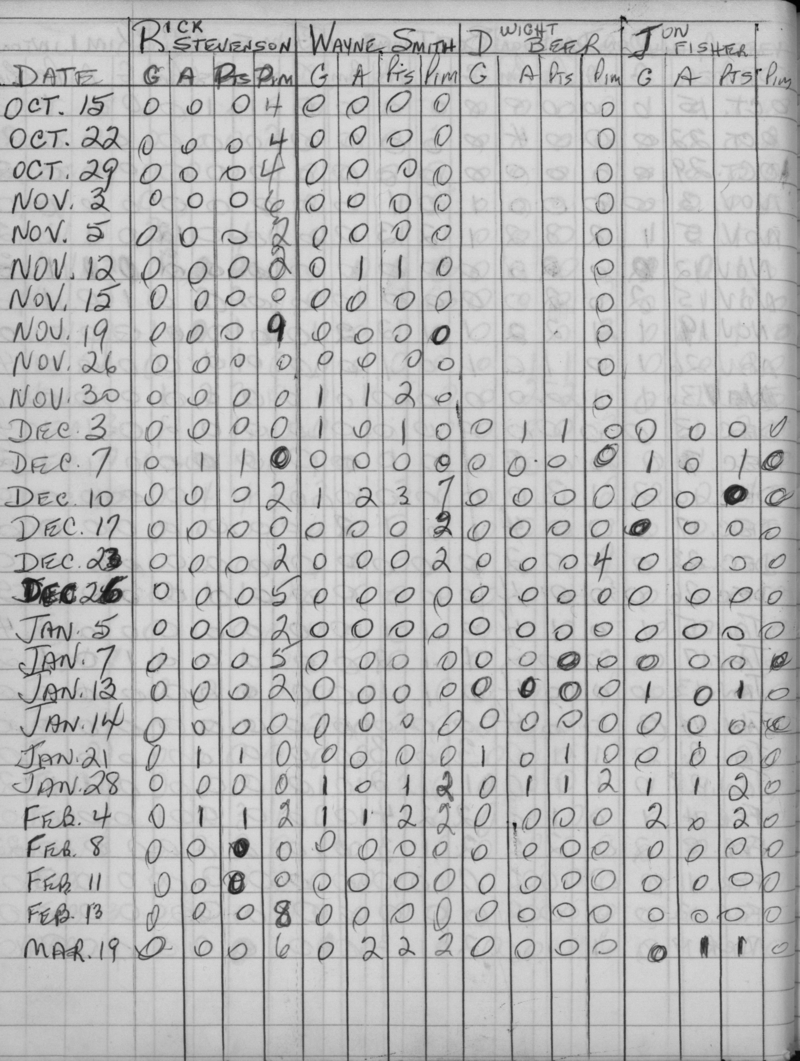 RICK STEVENSON WAYNE SMITH DWIGHT BEER JON FISHER
DATE G A Pts Pim G A Pts Pim G A Pts Pim G A Pts Pim
OCT. 15 0 0 0 4 0 0 0 0 0
OCT. 22 0 0 0 4 0 0 0 0 0
OCT. 29 0 0 0 4 0 0 0 0 0
NOV. 3 0 0 0 6 0 0 0 0 0
NOV. 5 0 0 0 2 0 0 0 0 0
NOV. 12 0 0 0 2 0 1 1 0 0
NOV. 15 0 0 0 0 0 0 0 0 0
NOV. 19 0 0 0 9 0 0 0 0 0
NOV. 26 0 0 0 0 0 0 0 0 0
NOV. 30 0 0 0 0 1 1 2 0 0
DEC. 3 0 0 0 0 1 0 1 0 0 1 1 0 0 0 0 0
DEC. 7 0 1 1 0 0 0 0 0 0 0 0 0 1 0 1 0
DEC. 10 0 0 0 2 1 2 3 7 0 0 0 0 0 0 0 0
DEC. 17 0 0 0 0 0 0 0 2 0 0 0 0 0 0 0 0
DEC. 23 0 0 0 2 0 0 0 2 0 0 0 4 0 0 0 0
DEC 26 0 0 0 5 0 0 0 0 0 0 0 0 0 0 0 0
JAN. 5 0 0 0 2 0 0 0 0 0 0 0 0 0 0 0 0
JAN. 7 0 0 0 5 0 0 0 0 0 0 0 0 0 0 0 0
JAN. 12 0 0 0 2 0 0 0 0 0 0 0 0 1 0 1 0
JAN. 14 0 0 0 0 0 0 0 0 0 0 0 0 0 0 0 0
JAN. 21 0 1 1 0 0 0 0 0 1 0 1 0 0 0 0 0
JAN. 28 0 0 0 0 1 0 1 2 0 1 1 2 1 1 2 0
FEB. 4 0 1 1 2 1 1 2 2 0 0 0 0 2 0 2 0
FEB. 8 0 0 0 0 0 0 0 0 0 0 0 0 0 0 0 0
FEB. 11 0 0 0 0 0 0 0 0 0 0 0 0 0 0 0 0
FEB. 13 0 0 0 8 0 0 0 0 0 0 0 0 0 0 0 0
MAR. 19 0 0 0 6 0 2 2 2 0 0 0 0 0 1 1 0